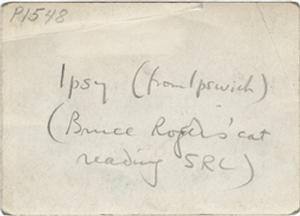 P1548
Ipsy (from Ipswich)
(Bruce Rogers' cat
reading SRL)